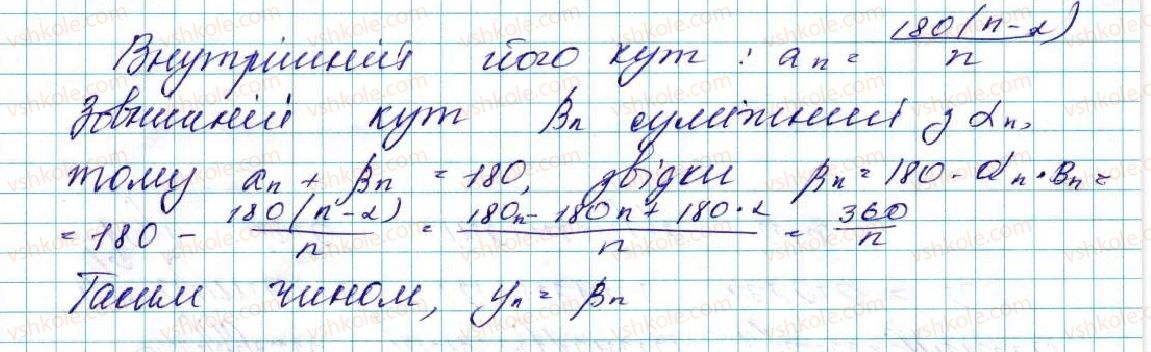 Внутрішній його кут : aₙ = 180(n-2)/n
Зовнішній кут βₙ суміжний з αₙ,
тому aₙ + βₙ = 180, звідки βₙ = 180 - αₙ · Bₙ =
= 180 - 180(n-2)/n = 180n - 180n + 180·2/n = 360/n
Таким чином, yₙ = βₙ